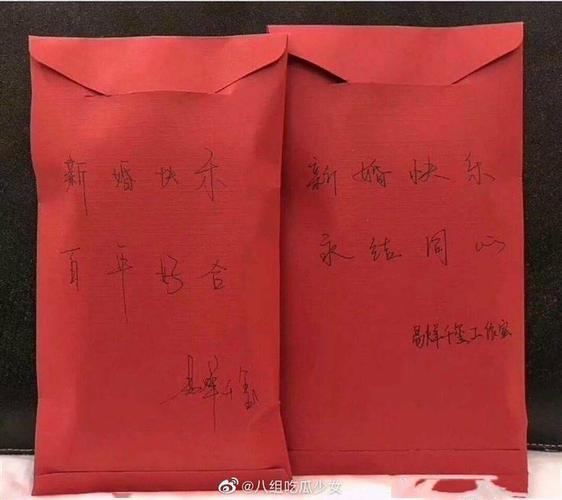 新婚快乐
百年好合
易烊千玺
新婚快乐
永结同心
易烊千玺工作室
@八组吃瓜少女